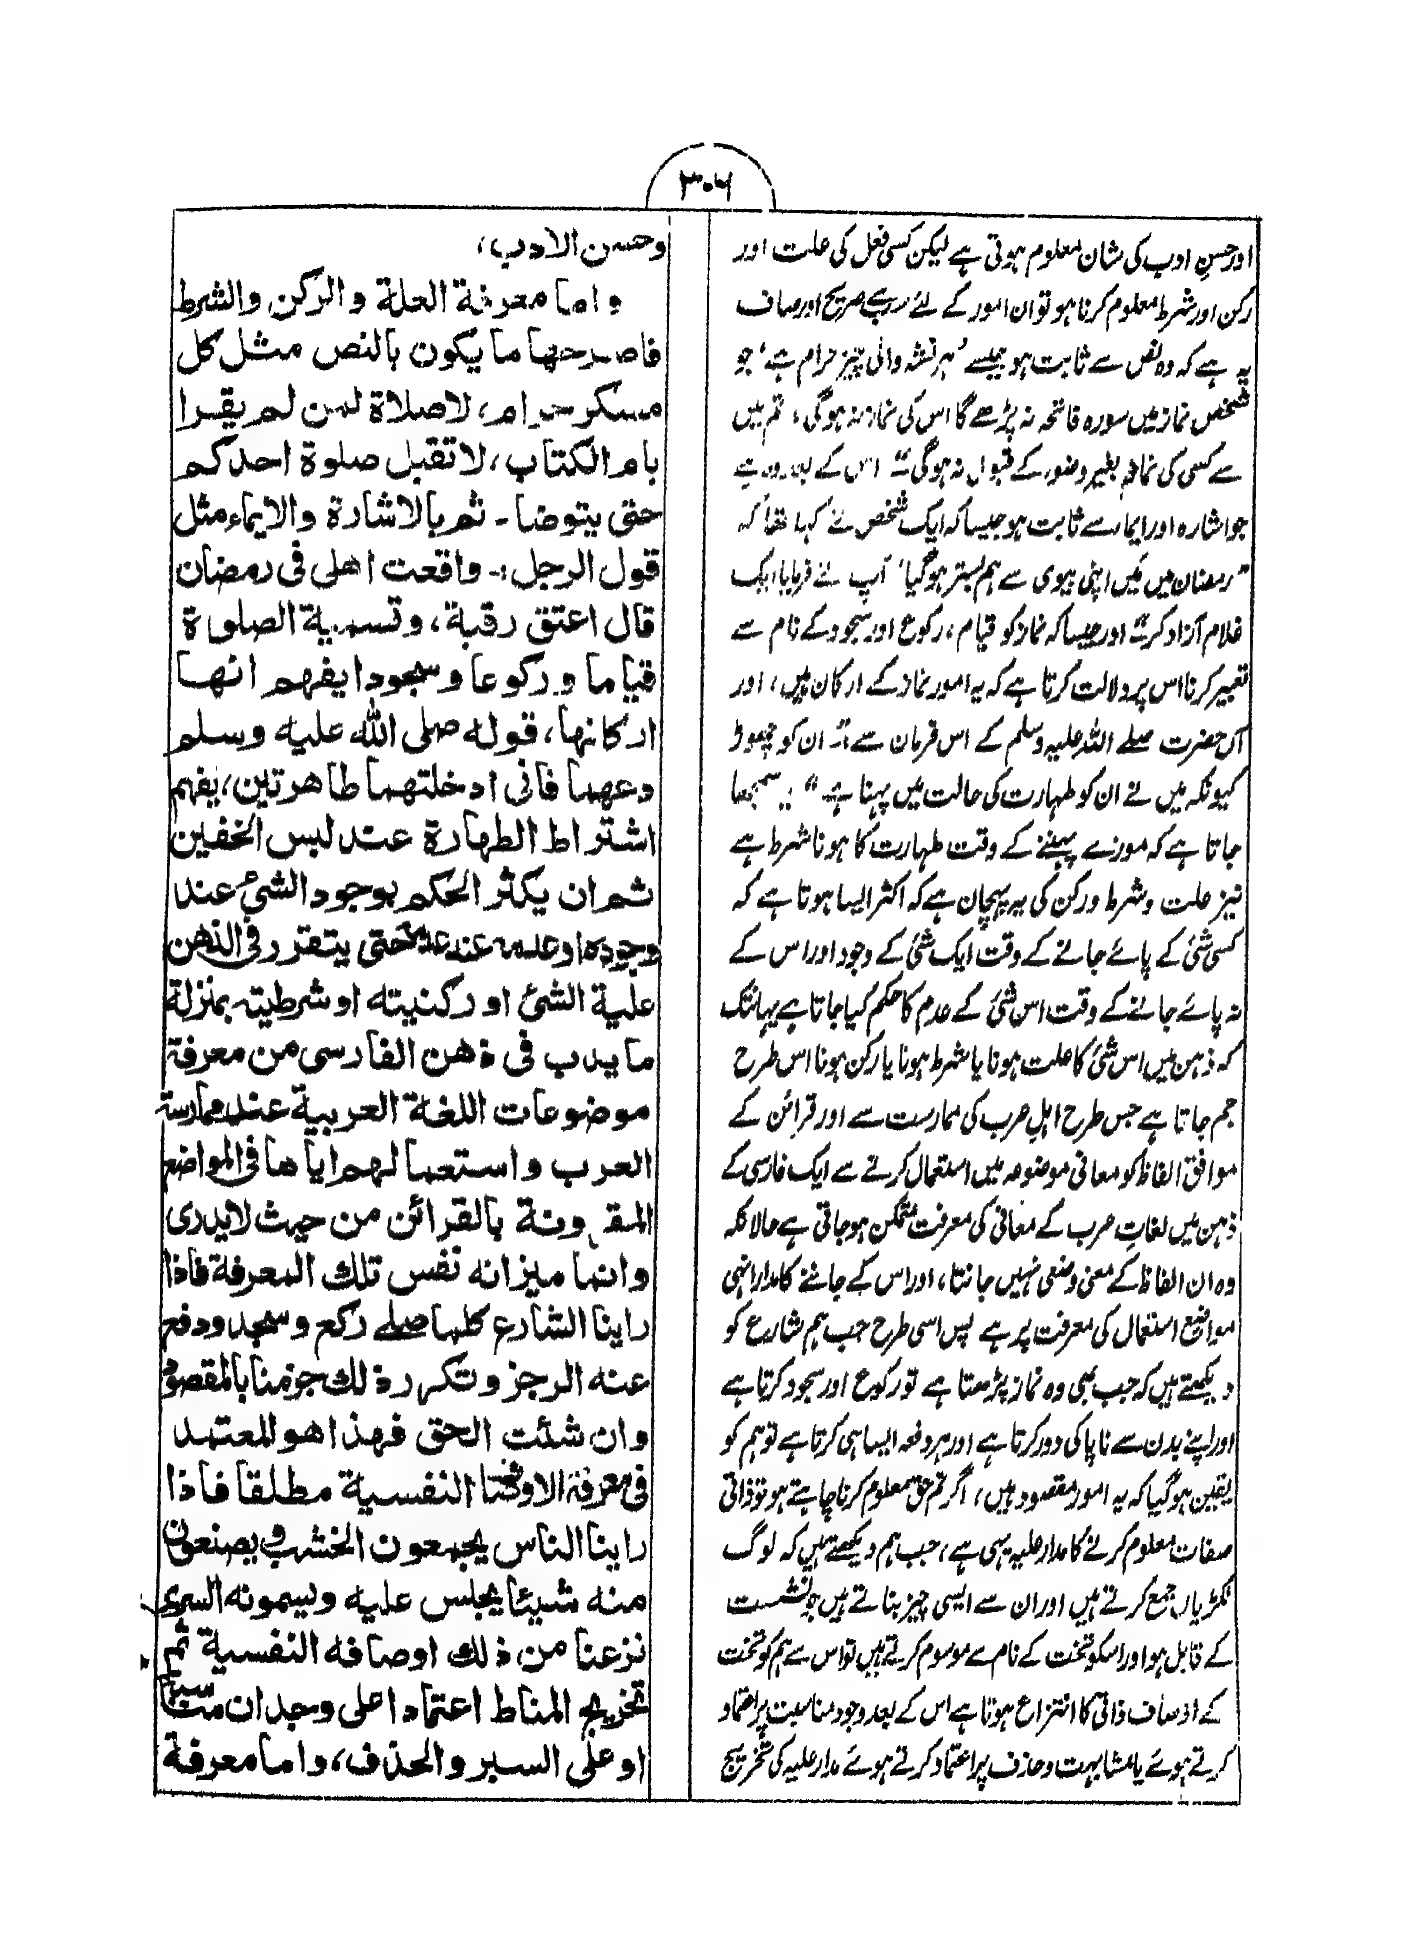 ۳۰۶
اور حسنِ ادب کی شان معلوم ہوتی ہے لیکن کسی فعل کی علت اور
رکن اور شرط معلوم کرنا ہو تو ان امور کے لئے سب سے صریح اور صاف
یہ ہے کہ وہ نص سے ثابت ہو جیسے ’ہر نشہ والی چیز حرام ہے‘ جو
شخص نماز میں سورہ فاتحہ نہ پڑھے گا اس کی نماز نہ ہوگی، تم میں
سے کسی کی نماز بغیر وضو کے قبول نہ ہوگی“ اس کے بعد وہ ہے
جو اشارہ اور ایماء سے ثابت ہو جیسا کہ ایک شخص نے کہا تھا کہ
”رمضان میں میں اپنی بیوی سے ہم بستر ہوگیا‘ آپ نے فرمایا ایک
غلام آزاد کر“ اور جیسا کہ نماز کو قیام، رکوع اور سجود کے نام سے
تعبیر کرنا اس پر دلالت کرتا ہے کہ یہ امور نماز کے ارکان ہیں، اور
آں حضرت صلے اللہ علیہ وسلم کے اس فرمان سے ”ان کو چھوڑ
کیونکہ میں نے ان کو طہارت کی حالت میں پہنا ہے“ یہ سمجھا
جاتا ہے کہ موزے پہننے کے وقت طہارت کا ہونا شرط ہے
نیز علت و شرط و رکن کی یہ پہچان ہے کہ اکثر ایسا ہوتا ہے کہ
کسی شئ کے پائے جانے کے وقت ایک شئ کے وجود اور اس کے
نہ پائے جانے کے وقت اس شئ کے عدم کا حکم کیا جاتا ہے یہانتک
کہ ذہن میں اس شئ کا علت ہونا یا شرط ہونا یا رکن ہونا اس طرح
جم جاتا ہے جس طرح اہلِ عرب کی ممارست سے اور قرائن کے
موافق الفاظ کو معانی موضوعہ میں استعمال کرنے سے ایک فارسی کے
ذہن میں لغاتِ عرب کے معانی کی معرفت متمکن ہو جاتی ہے حالانکہ
وہ ان الفاظ کے معنی وضعی نہیں جانتا، اور اس کے جاننے کا مدار انہی
مواضع استعمال کی معرفت پر ہے پس اسی طرح جب ہم شارع کو
دیکھتے ہیں کہ جب بھی وہ نماز پڑھتا ہے تو رکوع اور سجود کرتا ہے
اور اپنے بدن سے ناپاکی دور کرتا ہے اور ہر دفعہ ایسا ہی کرتا ہے تو ہم کو
یقین ہو گیا کہ یہ امور مقصود ہیں، اگر تم حق معلوم کرنا چاہتے ہو تو ذاتی
صفات معلوم کرنے کا مدار علیہ یہی ہے، جب ہم دیکھتے ہیں کہ لوگ
لکڑیاں جمع کرتے ہیں اور ان سے ایسی چیز بناتے ہیں جو نشست
کے قابل ہو اور اسکو تخت کے نام سے موسوم کرتے ہیں تو اس سے ہم کو تخت
کے اوصاف ذاتی کا انتزاع ہوتا ہے اس کے بعد وجود مناسبت پر اعتماد
کرتے ہوئے یا مشابہت و حذف پر اعتماد کرتے ہوئے مدار علیہ کی تخریج
وحسن الادب،
واما معرفة العلة والركن والشرط
فاصرحها ما يكون بالنص مثل كل
مسكر حرام، لاصلاة لمن لم يقرا
بام الكتاب، لا تقبل صلوة احدكم
حتى يتوضا - ثم بالاشارة والايماء مثل
قول الرجل :- واقعت اهلى فى رمضان
قال اعتق رقبة، وتسمية الصلوة
قياما و ركوعا وسجودا يفهم انها
اركانها، قوله صلى الله عليه وسلم
دعهما فانى ادخلتهما طاهرتين، يفهم
اشتراط الطهارة عند لبس الخفين
ثم ان يكثر الحكم بوجود الشئ عند
وجوده او عدمه عند عدمه حتى يتقرر فى الذهن
علية الشئ او ركنيته او شرطيته بمنزلة
ما يدب فى ذهن الفارسى من معرفة
موضوعات اللغة العربية عند ممارسة
العرب واستعمالهم اياها فى المواضع
المقرونة بالقرائن من حيث لايدرى
وانما ميزانه نفس تلك المعرفة فاذا
راينا الشارع كلما صلے ركع وسجد ودفع
عنه الرجز وتكرر ذلك جزمنا بالمقصود
وان شئت الحق فهذا هو المعتمد
فى معرفة الاوصاف النفسية مطلقا فاذا
راينا الناس يجمعون الخشب ويصنعون
منه شيئا يجلس عليه ويسمونه السرير
نزعنا من ذلك اوصافه النفسية ثم
تخريج المناط اعتمادا على وجدان مناسبة
او على السبر والحذف، واما معرفة